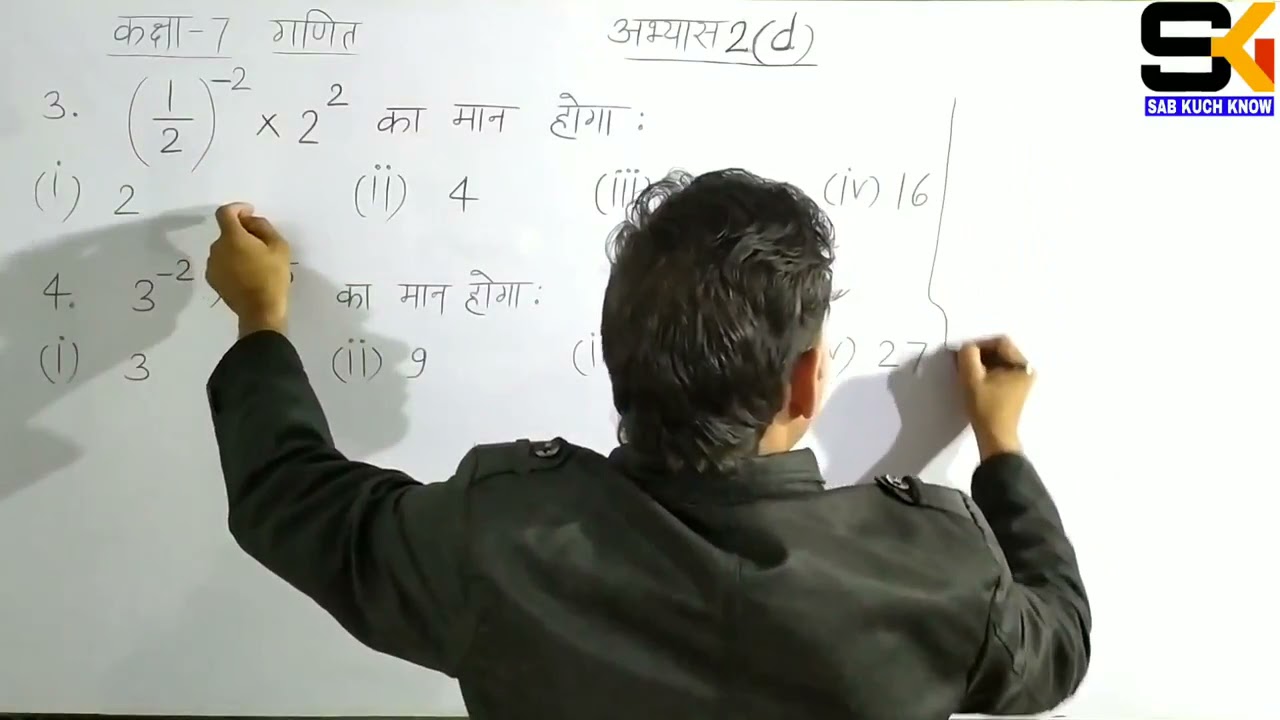 कक्षा-7 गणित अभ्यास 2(d)
SK
SAB KUCH KNOW
3. (1/2)⁻² × 2² का मान होगा :
(i) 2 (ii) 4 (iii) (iv) 16
4. 3⁻² का मान होगा :
(i) 3 (ii) 9 27